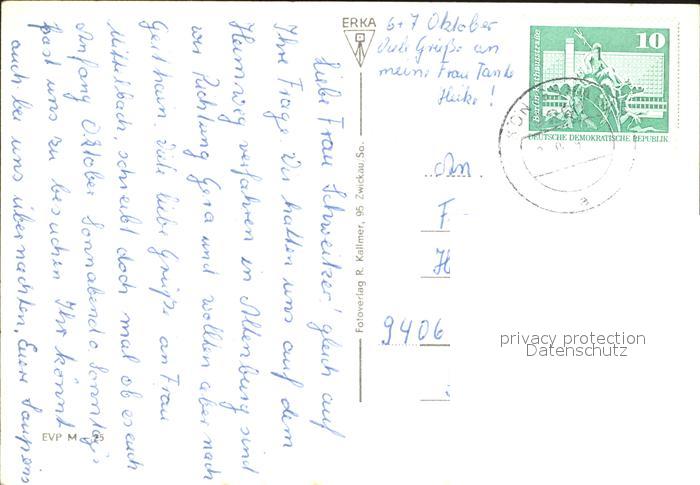 Liebe Frau Schweitzer! gleich auf
Ihre Frage. Wir hatten uns auf dem
Heimweg verfahren in Altenburg sind
wir Richtung Gera und wollten aber nach
Geithain. Viele liebe Grüße an Frau
Mittelbach, schreibt doch mal ob es euch
Anfang Oktober Sonnabend o Sonntag
paßt uns zu besuchen Ihr könnt
auch bei uns übernachten. Eure
6+7 Oktober
Viele Grüße an
meine Frau Tante
Heike!
ERKA
Fotoverlag R. Kallmer, 95 Zwickau So.
EVP M -,25
10
Berlin, Rathausstraße
DEUTSCHE DEMOKRATISCHE REPUBLIK
An
F
H
9406
privacy protection
Datenschutz